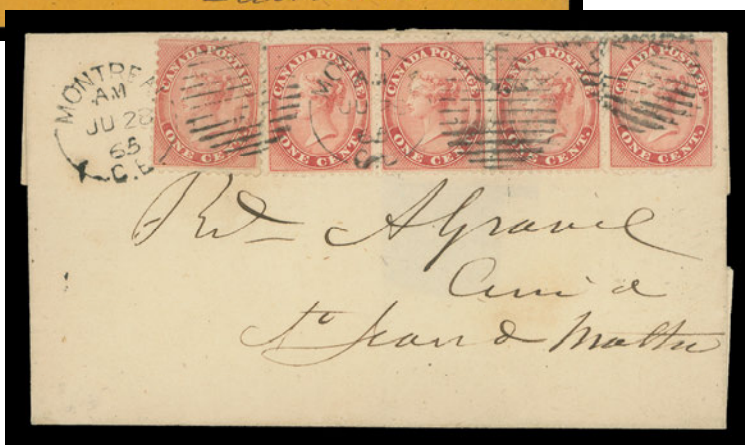 MONTREAL
AM
JU 28
65
C.E
CANADA POSTAGE
ONE CENT.
CANADA POSTAGE
ONE CENT.
CANADA POSTAGE
ONE CENT.
CANADA POSTAGE
ONE CENT.
CANADA POSTAGE
ONE CENT.
Rvd A Gravel
Curé de
St Jean de Matha